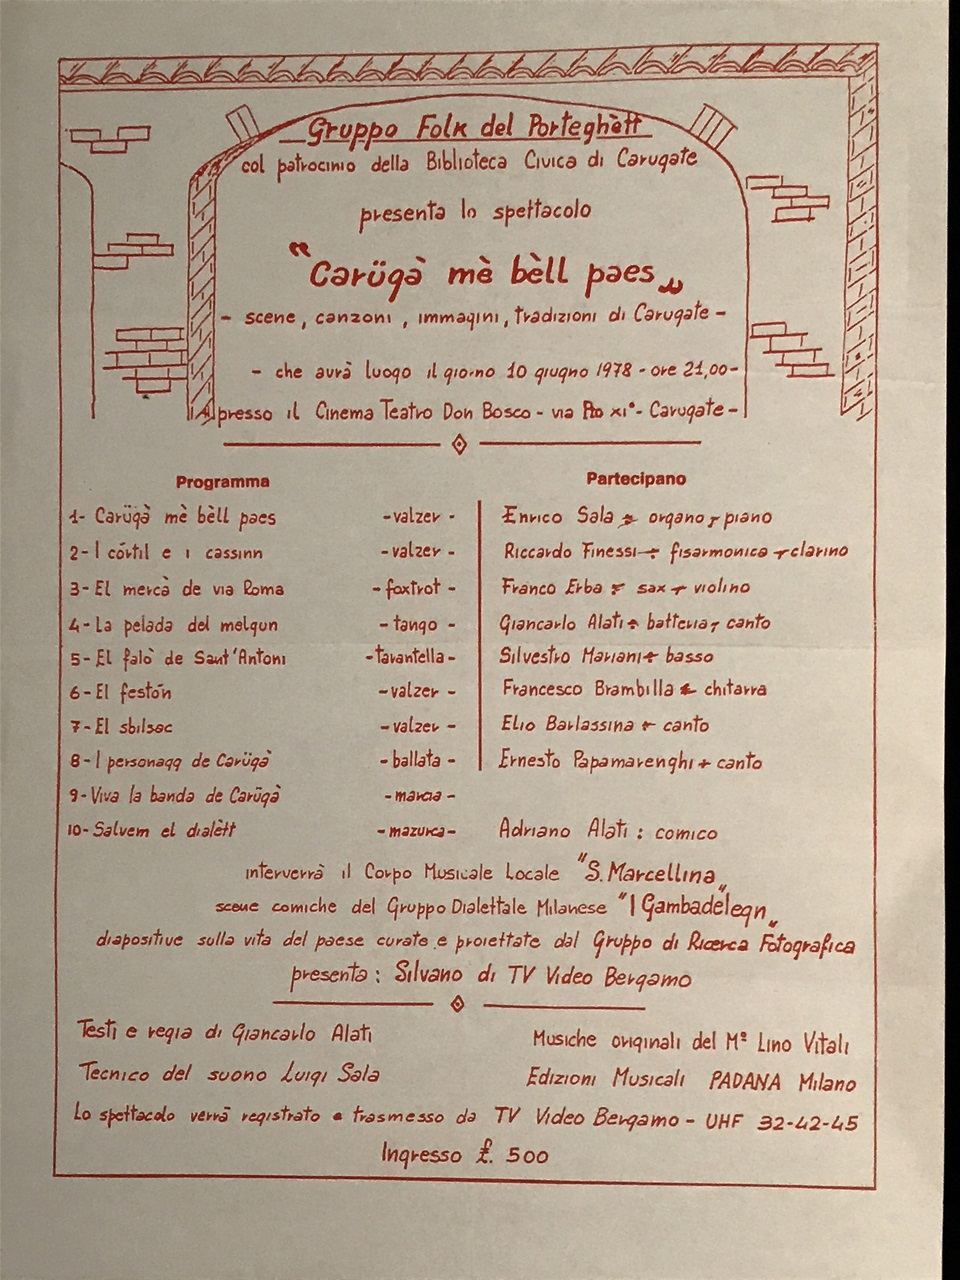 Gruppo Folk del Porteghètt
col patrocinio della Biblioteca Civica di Carugate
presenta lo spettacolo
"Carügà mè bèll paes„
- scene, canzoni, immagini, tradizioni di Carugate -
- che avrà luogo il giorno 10 giugno 1978 - ore 21,00-
presso il Cinema Teatro Don Bosco - via Pio XI° - Carugate -
Programma
1- Carügà mè bèll paes - valzer -
2- I córtil e i cassinn - valzer -
3- El mercà de via Roma - foxtrot -
4- La pelada del melgun - tango -
5- El falò de Sant'Antoni - tarantella -
6- El festón - valzer -
7- El sbilsac - valzer -
8- I personagg de Carügà - ballata -
9- Viva la banda de Carügà - marcia -
10- Salvem el dialètt - mazurca -
Partecipano
Enrico Sala - organo, piano
Riccardo Finessi - fisarmonica - clarino
Franco Erba - sax - violino
Giancarlo Alati - batteria, canto
Silvestro Mariani - basso
Francesco Brambilla - chitarra
Elio Barlassina - canto
Ernesto Papamarenghi - canto
Adriano Alati : comico
interverrà il Corpo Musicale Locale "S. Marcellina„
scene comiche del Gruppo Dialettale Milanese "I Gambadelegn„
diapositive sulla vita del paese curate e proiettate dal Gruppo di Ricerca Fotografica
presenta : Silvano di TV Video Bergamo
Testi e regia di Giancarlo Alati
Musiche originali del Mº Lino Vitali
Tecnico del suono Luigi Sala
Edizioni Musicali PADANA Milano
Lo spettacolo verrà registrato e trasmesso da TV Video Bergamo - UHF 32-42-45
Ingresso £. 500